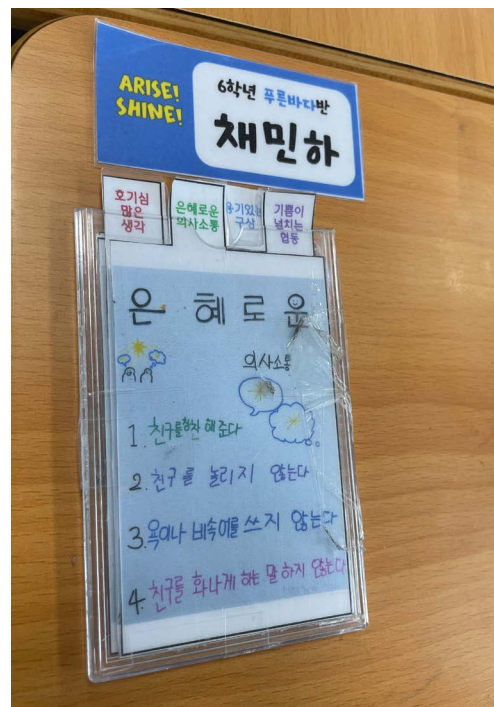 ARISE!
SHINE!
6학년 푸른바다반
채민하
호기심
많은
생각
은혜로운
의사소통
용기있는
구상
기쁨이
넘치는
협동
은혜로운
의사소통
1. 친구를 칭찬 해 준다
2. 친구를 놀리지 않는다
3. 욕이나 비속어를 쓰지 않는다
4. 친구를 화나게 하는 말 하지 않는다